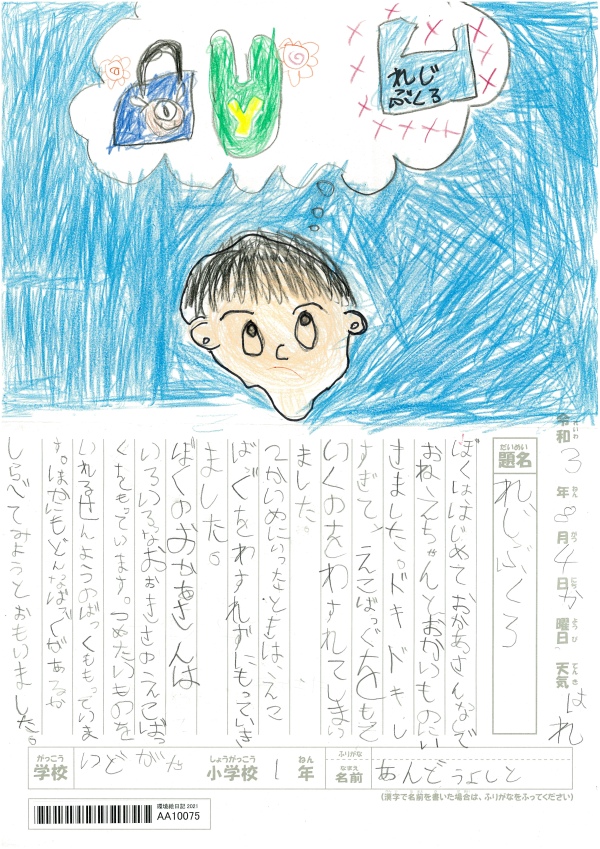 れじ
ぶくろ
Y
れいわ ねん がつ にち ようび てんき
令和3年8月4日か曜日 天気 はれ
だいめい
題名 れじぶくろ
ぼくははじめておかあさんなしで
おねえちゃんとおかいものにい
きました。ドキドキし
すぎて、えこばっぐをもて
いくのをわすれてしまい
ました。
2かいめにいったときは、えこ
ばっぐをわすれずにもっていき
ました。
ぼくのおかあさんは
いろいろなおおきさのえこばっ
くをもっています。つめたいものを
いれるせんようのばっくももっていま
す。ほかにもどんなばっぐがあるか
しらべてみようとおもいました。
がっこう しょうがっこう ねん ふりがな
学校 いどがや 小学校 1年
なまえ
名前 あんどうよしと
(漢字で名前を書いた場合は、ふりがなをふってください)
環境絵日記 2021
AA10075